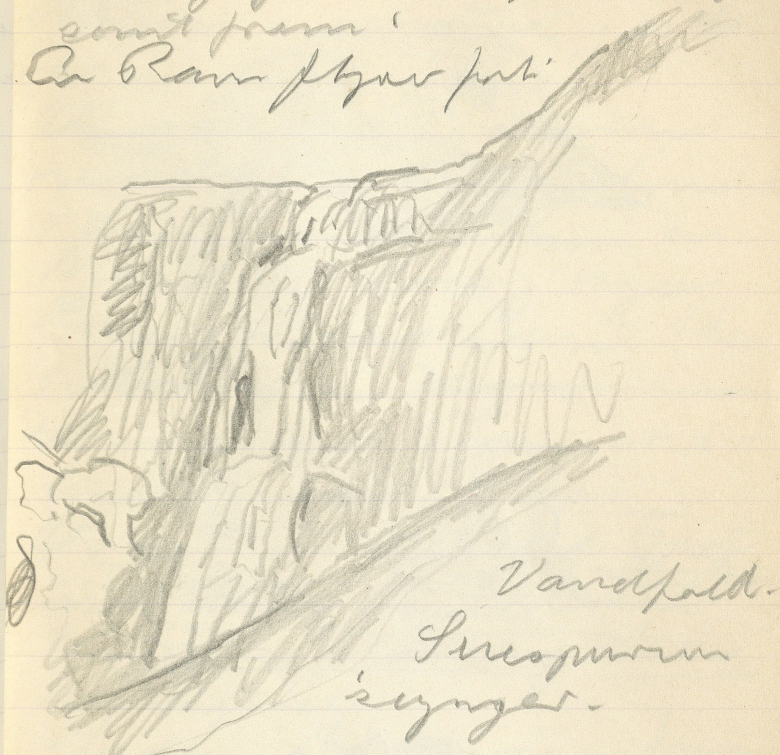 En Ravn flyver forbi
Vandfald.
Snespurven
synger.